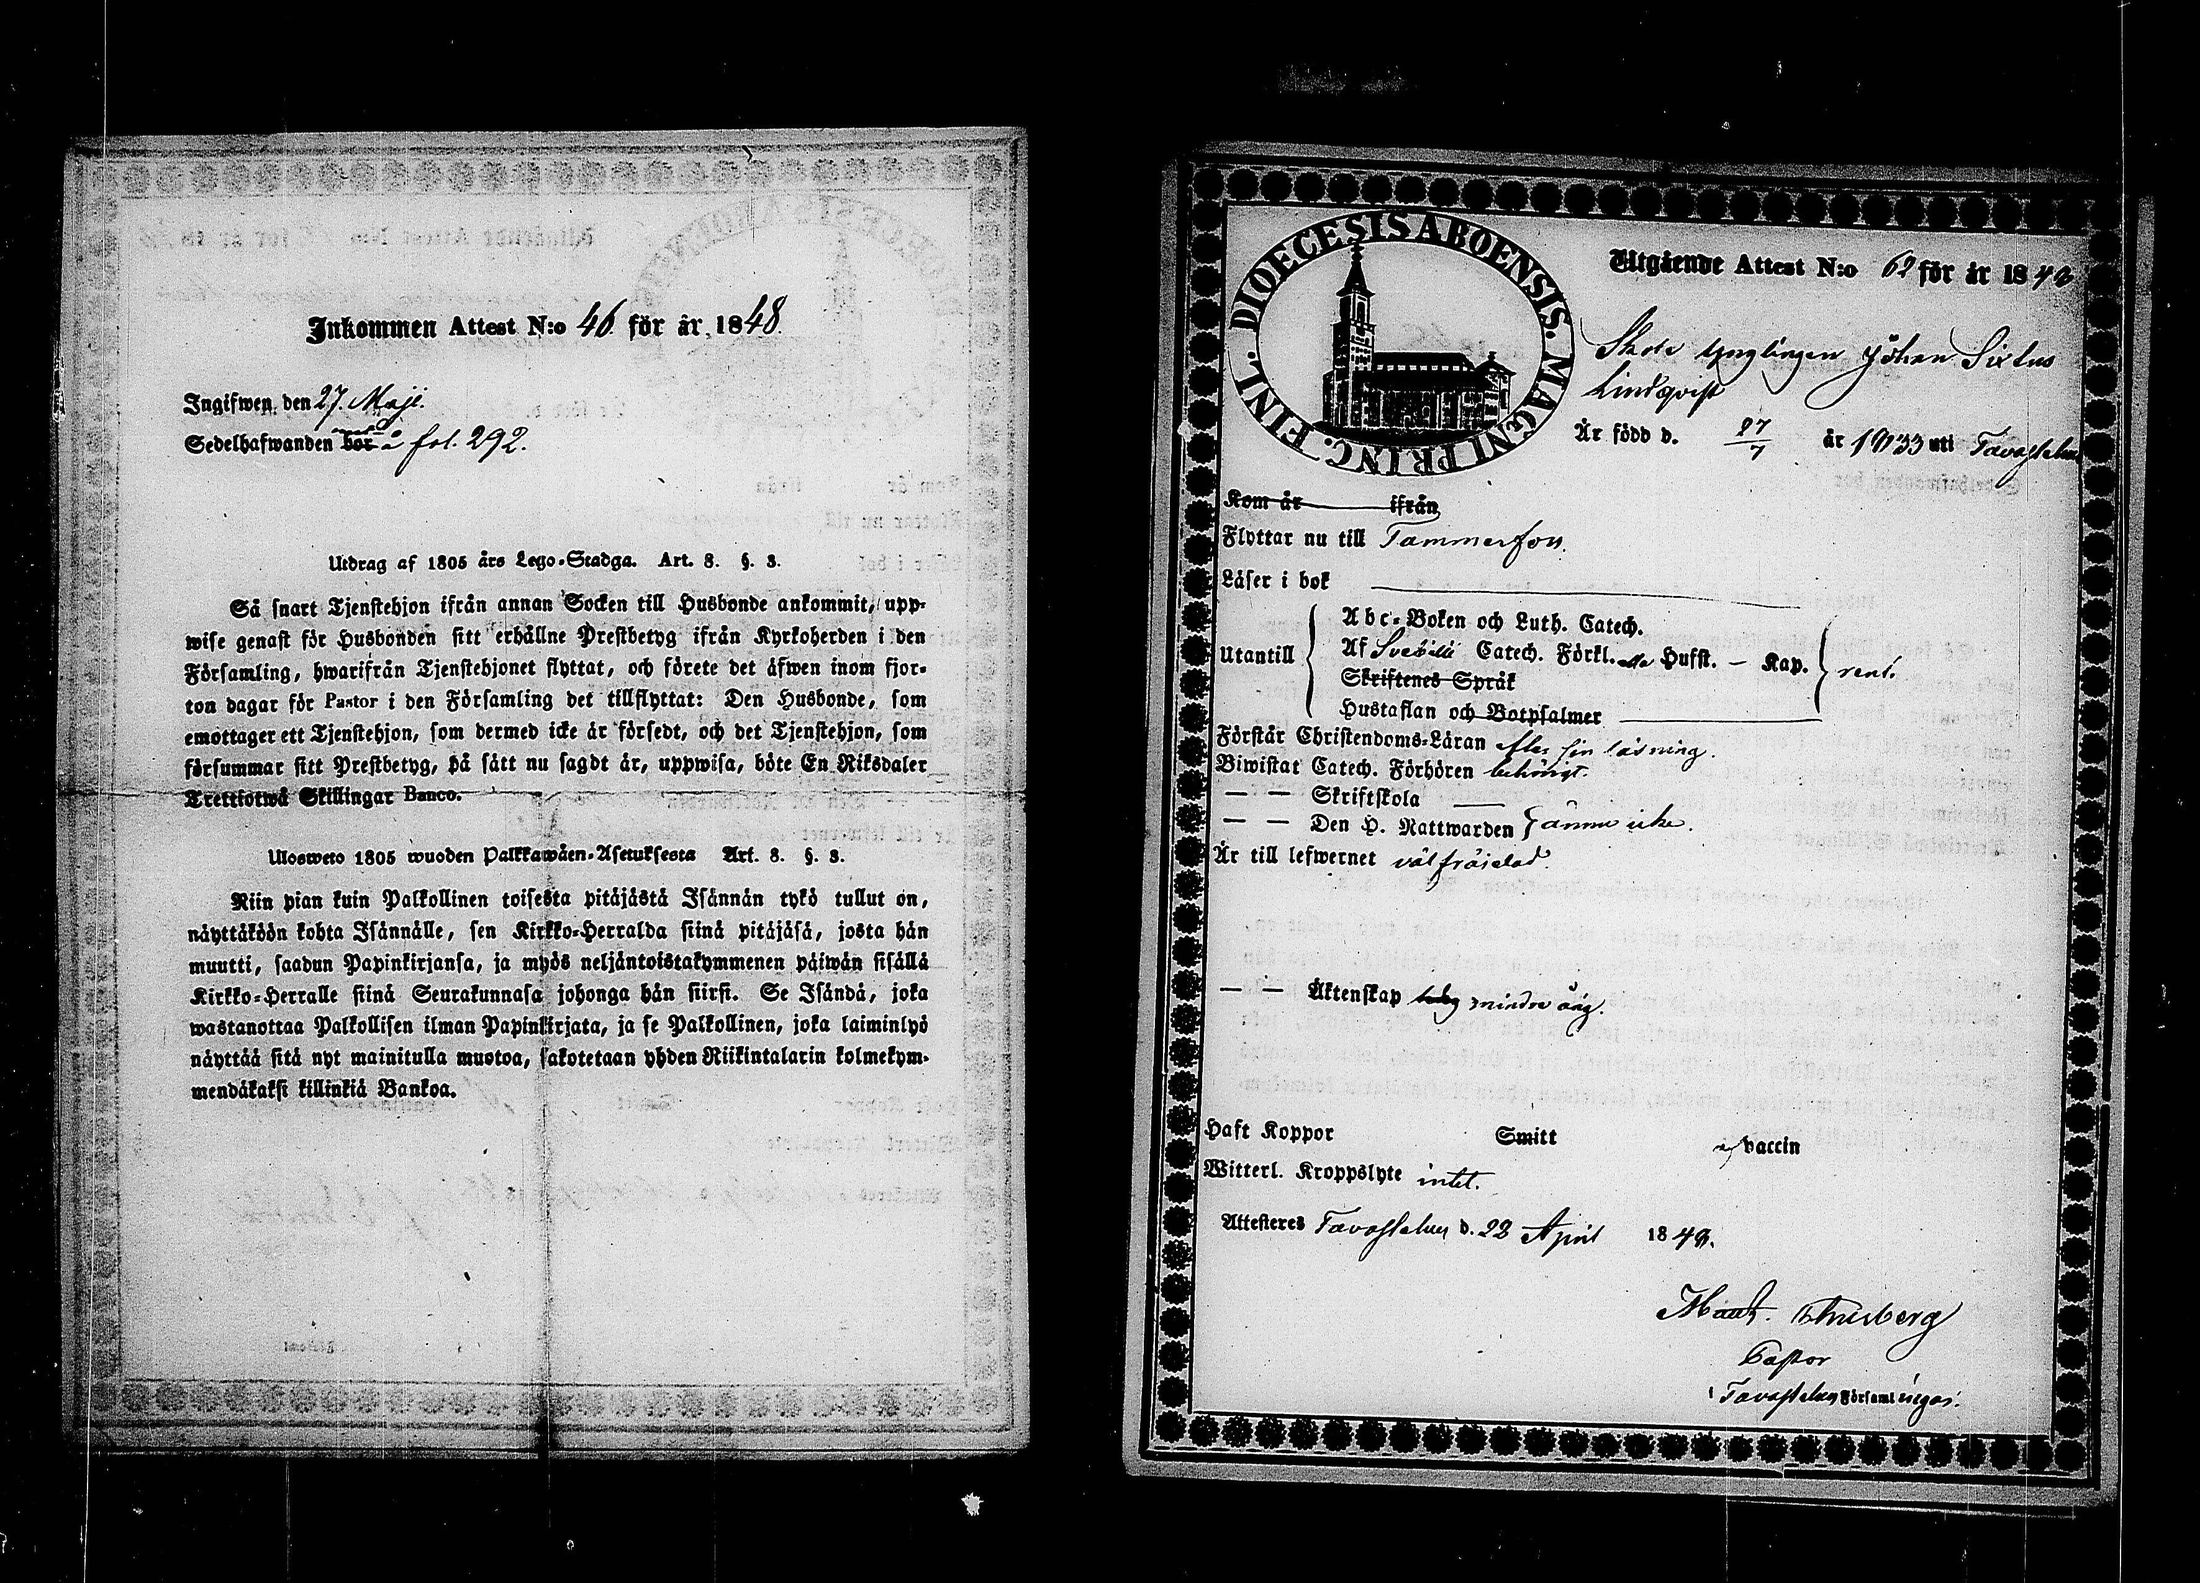 Inkommen Attest N:o 46 för år 1848.
Ingifwen den 27. Maji.
Sedelhafwanden bor å fol. 292.
Utdrag af 1805 års Lego-Stadga. Art. 8. §. 3.
Så snart Tjenstehjon ifrån annan Socken till Husbonde ankommit, upp-
wise genast för Husbonden sitt erhållne Prestbetyg ifrån Kyrkoherden i den
Församling, hwarifrån Tjenstehjonet flyttat, och förete det äfwen inom fjor-
ton dagar för Pastor i den Församling det tillflyttat: Den Husbonde, som
emottager ett Tjenstehjon, som dermed icke är försedt, och det Tjenstehjon, som
försummar sitt Prestbetyg, på sätt nu sagdt är, uppwisa, böte En Riksdaler
Trettiotwå Skillingar Banco.
Ulosweto 1805 wuoden Palkkawäen-Asetuksesta Art. 8. §. 3.
Niin pian kuin Palkollinen toisesta pitäjästä Isännän tykö tullut on,
näyttäköön kohta Isännälle, sen Kirkko-Herralda siinä pitäjäsä, josta hän
muutti, saadun Papinkirjansa, ja myös neljäntoistakymmenen päiwän sisällä
Kirkko-Herralle siinä Seurakunnasa johonga hän siirsi. Se Isändä, joka
wastanottaa Palkollisen ilman Papinkirjata, ja se Palkollinen, joka laiminlyö
näyttää sitä nyt mainitulla muotoa, sakotetaan yhden Riikintalarin kolmekym-
mendäkaksi killinkiä Bankoa.
DIOECESIS ABOENSIS. MAGNI PRINC. FINL.
Utgående Attest N:o 62 för år 1848
Skole Ynglingen Johan Sixtus
Lindqvist
Är född d. 27/7 år 1833 uti Tavastehus
Kom år ifrån
Flyttar nu till Tammerfors.
Läser i bok
Utantill
Abc-Boken och Luth. Catech.
Af Svebilii Catech. Förkl. Hufst. – Kap. rent.
Skriftenes Språk
Hustaflan och Botpsalmer
Förstår Christendoms-Läran efter sin läsning.
Biwistat Catech. Förhören behörigt.
— — Skriftskola
— — Den H. Nattwarden ännu icke.
Är till lefwernet väl fräjdad.
— — Äktenskap ledig mindre årig.
Haft Koppor Smitt vaccin
Witterl. Kroppslyte intet.
Attesteres Tavastehus d. 22 April 1848.
Pastor
i Tavastehus Församlingar.